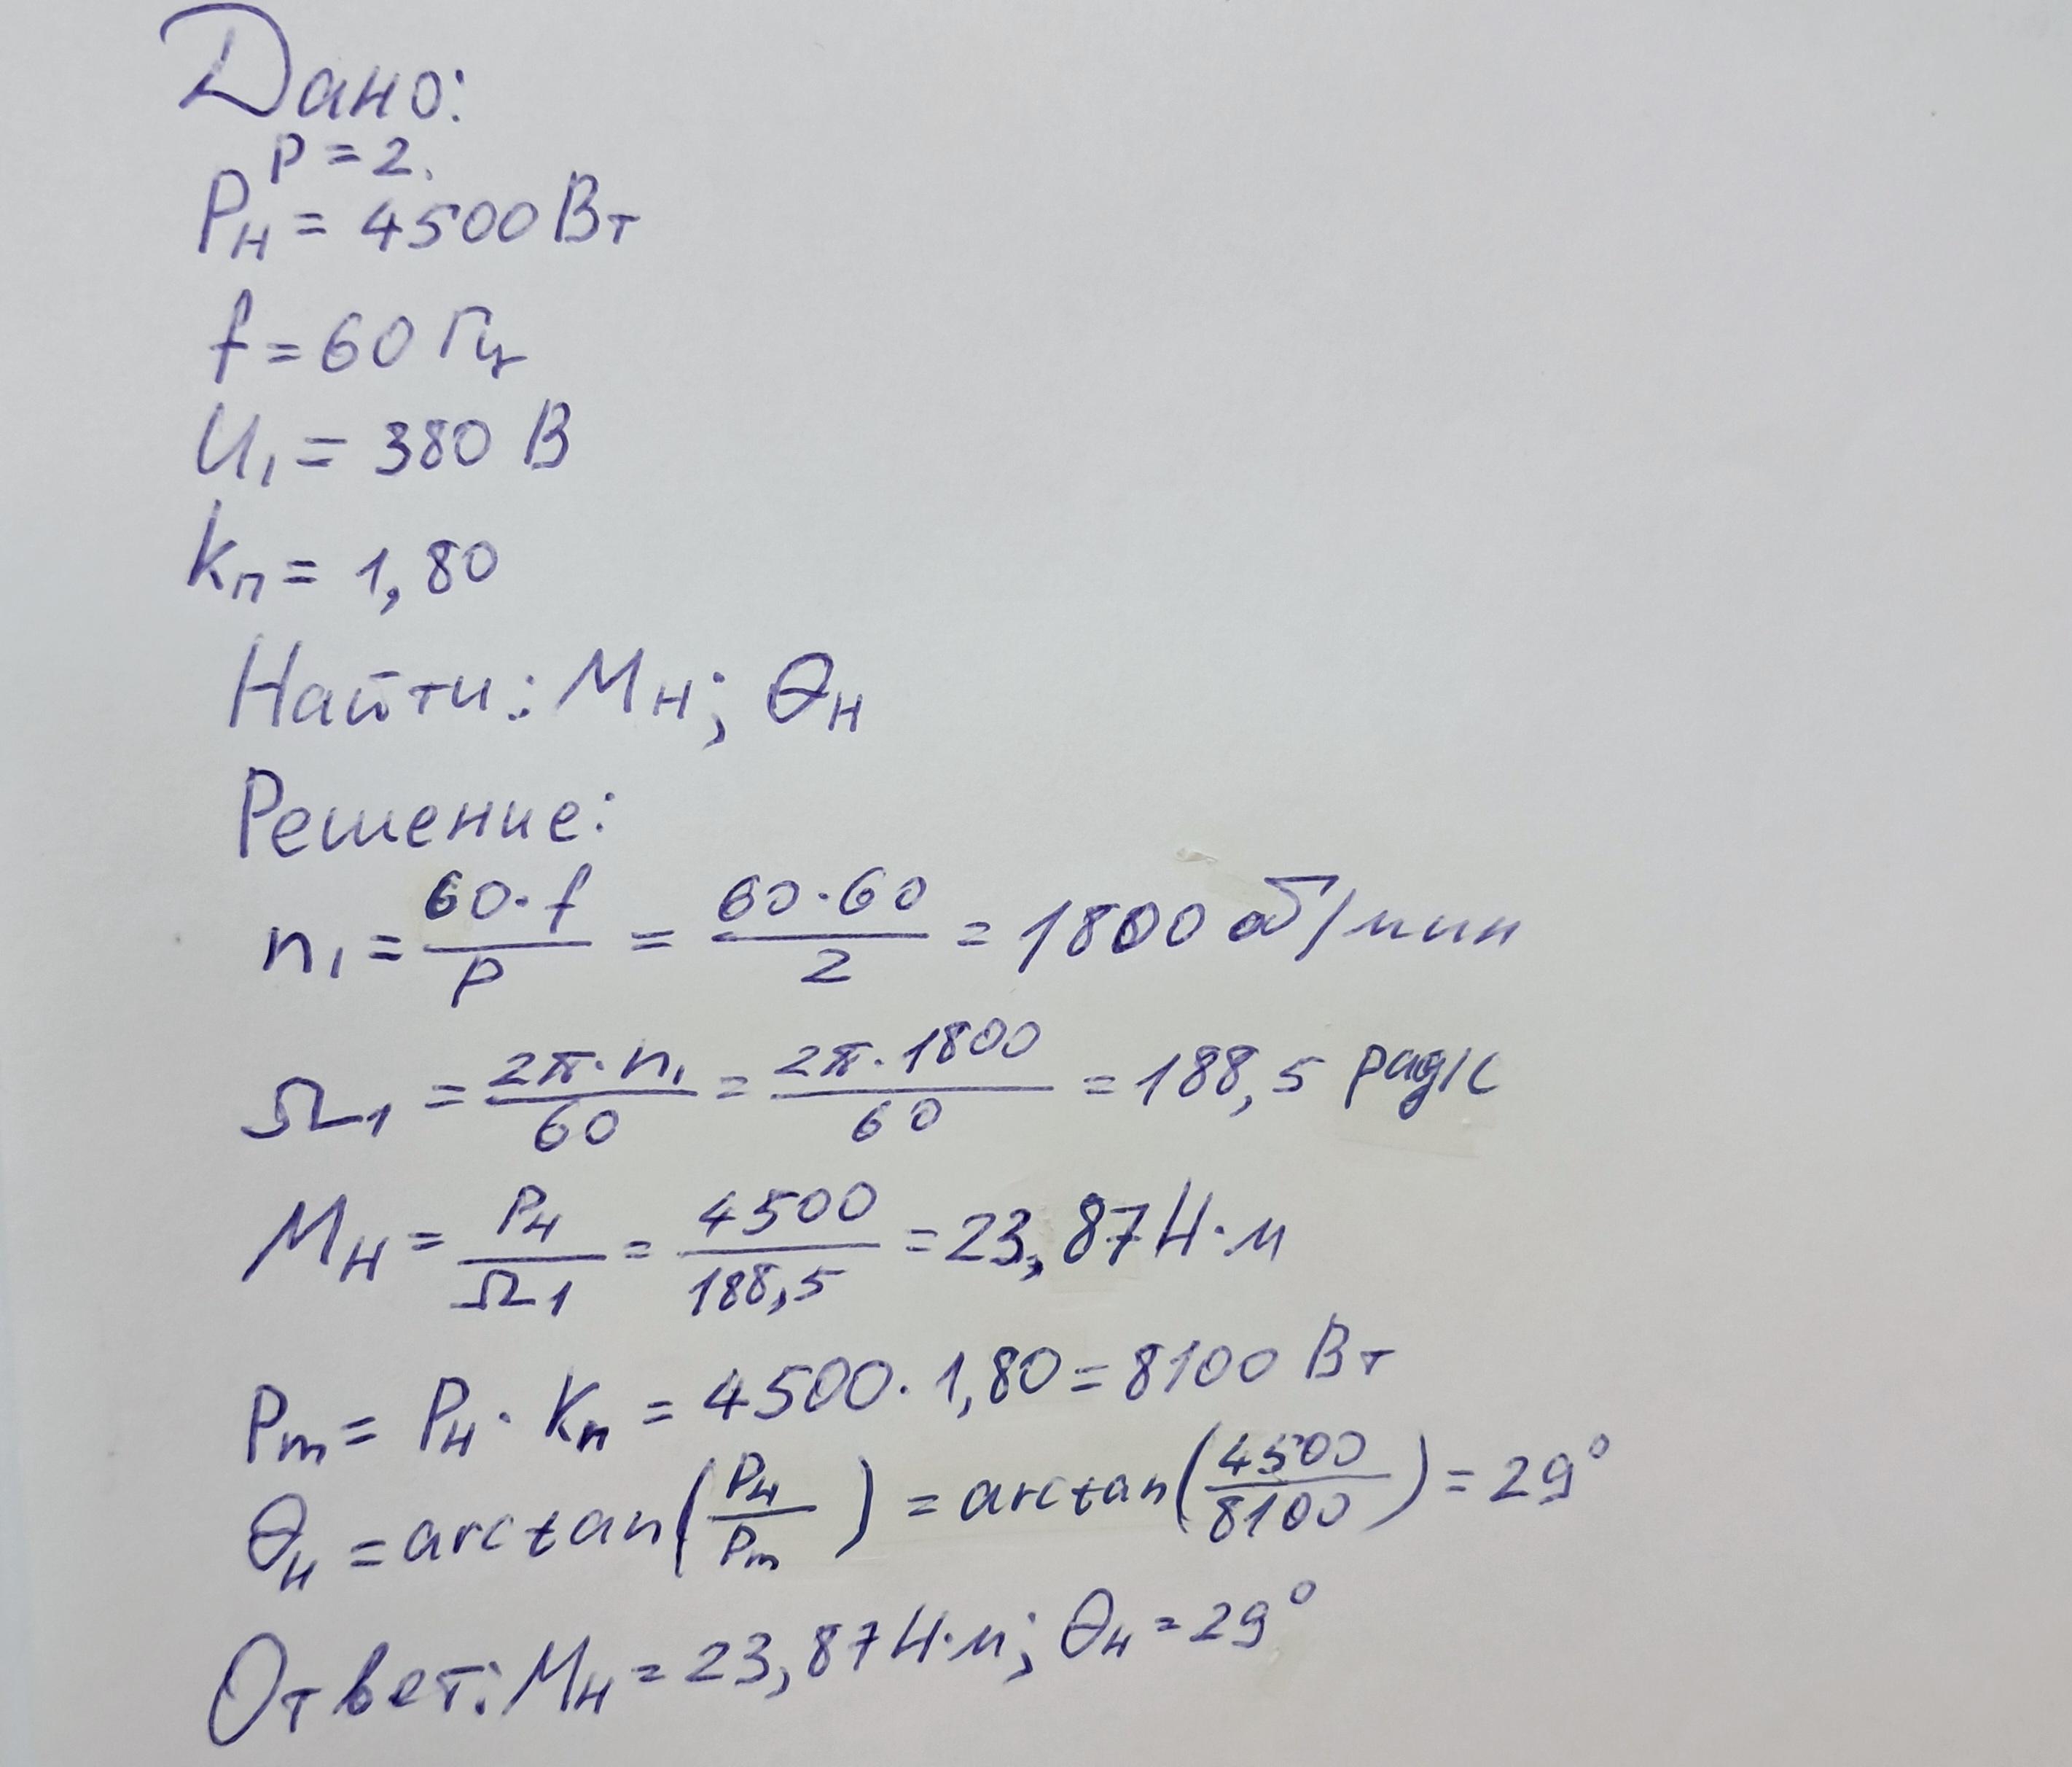 Дано:
p = 2.
Pн = 4500 Вт
f = 60 Гц
U₁ = 380 В
kп = 1,80
Найти: Mн; Θн
Решение:
n₁ = 60·f / p = 60·60 / 2 = 1800 об/мин
Ω₁ = 2π·n₁ / 60 = 2π·1800 / 60 = 188,5 рад/с
Mн = Pн / Ω₁ = 4500 / 188,5 = 23,87 Н·м
Pm = Pн · kп = 4500 · 1,80 = 8100 Вт
Θн = arctan(Pн / Pm) = arctan(4500 / 8100) = 29°
Ответ: Mн = 23,87 Н·м; Θн = 29°